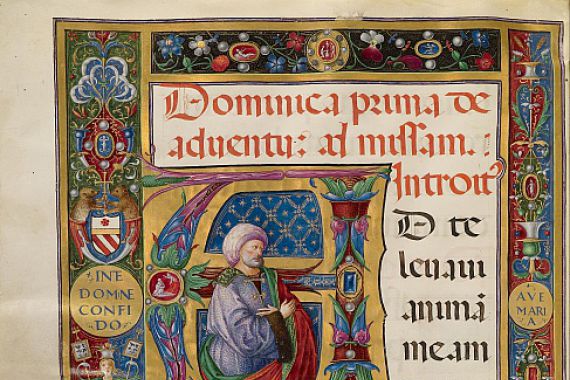 Dominica prima de
aduentu: ad missam :
Introit⁹
D te
leuaui
animā
meam
IN TE
DOMNE
CONFI
·DO·
AVE
MARI
A